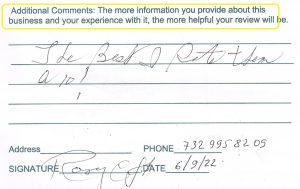 Additional Comments: The more information you provide about this
business and your experience with it, the more helpful your review will be.
The Best I Rate them
a
Address PHONE 732 995 8209
SIGNATURE DATE 6/9/22